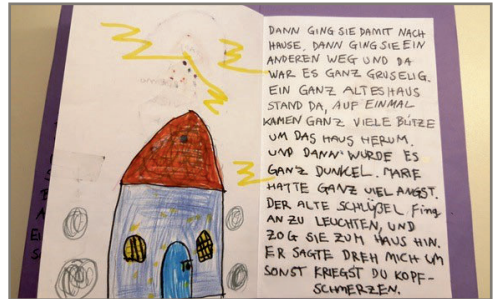 DANN GING SIE DAMIT NACH
HAUSE, DANN GING SIE EIN
ANDEREN WEG UND DA
WAR ES GANZ GRUSELIG.
EIN GANZ ALTES HAUS
STAND DA, AUF EINMAL
KAMEN GANZ VIELE BLITZE
UM DAS HAUS HERUM.
UND DANN WURDE ES
GANZ DUNKEL. MARIE
HATTE GANZ VIEL ANGST.
DER ALTE SCHLÜßEL, fing
AN ZU LEUCHTEN, UND
ZOG SIE ZUM HAUS HIN.
ER SAGTE DREH MICH UM
SONST KRIEGST DU KOPF-
SCHMERZEN.